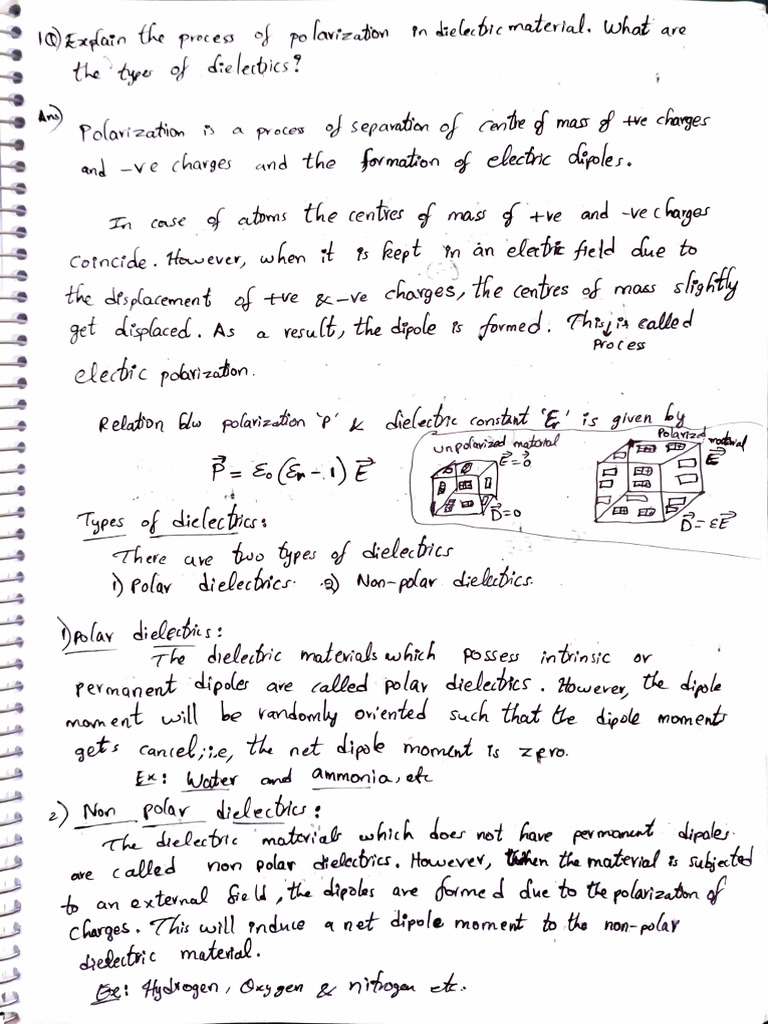 1Q) Explain the process of polarization in dielectric material. What are
the types of dielectrics?
Ans) Polarization is a process of separation of centre of mass of +ve charges
and -ve charges and the formation of electric dipoles.
In case of atoms the centres of mass of +ve and -ve charges
coincide. However, when it is kept in an electric field due to
the displacement of +ve & -ve charges, the centres of mass slightly
get displaced. As a result, the dipole is formed. This process is called
electric polarization.
Relation b/w polarization 'P' & dielectric constant 'εr' is given by
P⃗ = ε₀(εr - 1) E⃗
unpolarized material
E⃗ = 0⃗
D⃗ = 0
Polarized material
E⃗
D⃗ = εE⃗
Types of dielectrics:
There are two types of dielectrics
1) Polar dielectrics. 2) Non-polar dielectrics.
1) polar dielectrics:
The dielectric materials which possess intrinsic or
permanent dipoles are called polar dielectrics. However, the dipole
moment will be randomly oriented such that the dipole moments
gets cancel, i.e, the net dipole moment is zero.
Ex: Water and ammonia, etc
2) Non polar dielectrics:
The dielectric materials which does not have permanent dipoles
are called non polar dielectrics. However, when the material is subjected
to an external field, the dipoles are formed due to the polarization of
charges. This will induce a net dipole moment to the non-polar
dielectric material.
Ex: Hydrogen, Oxygen & nitrogen etc.